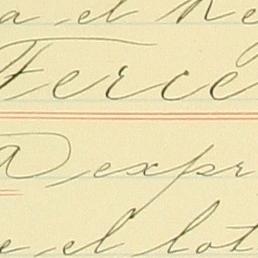 a el Re
Ferce
A expr
e el lot